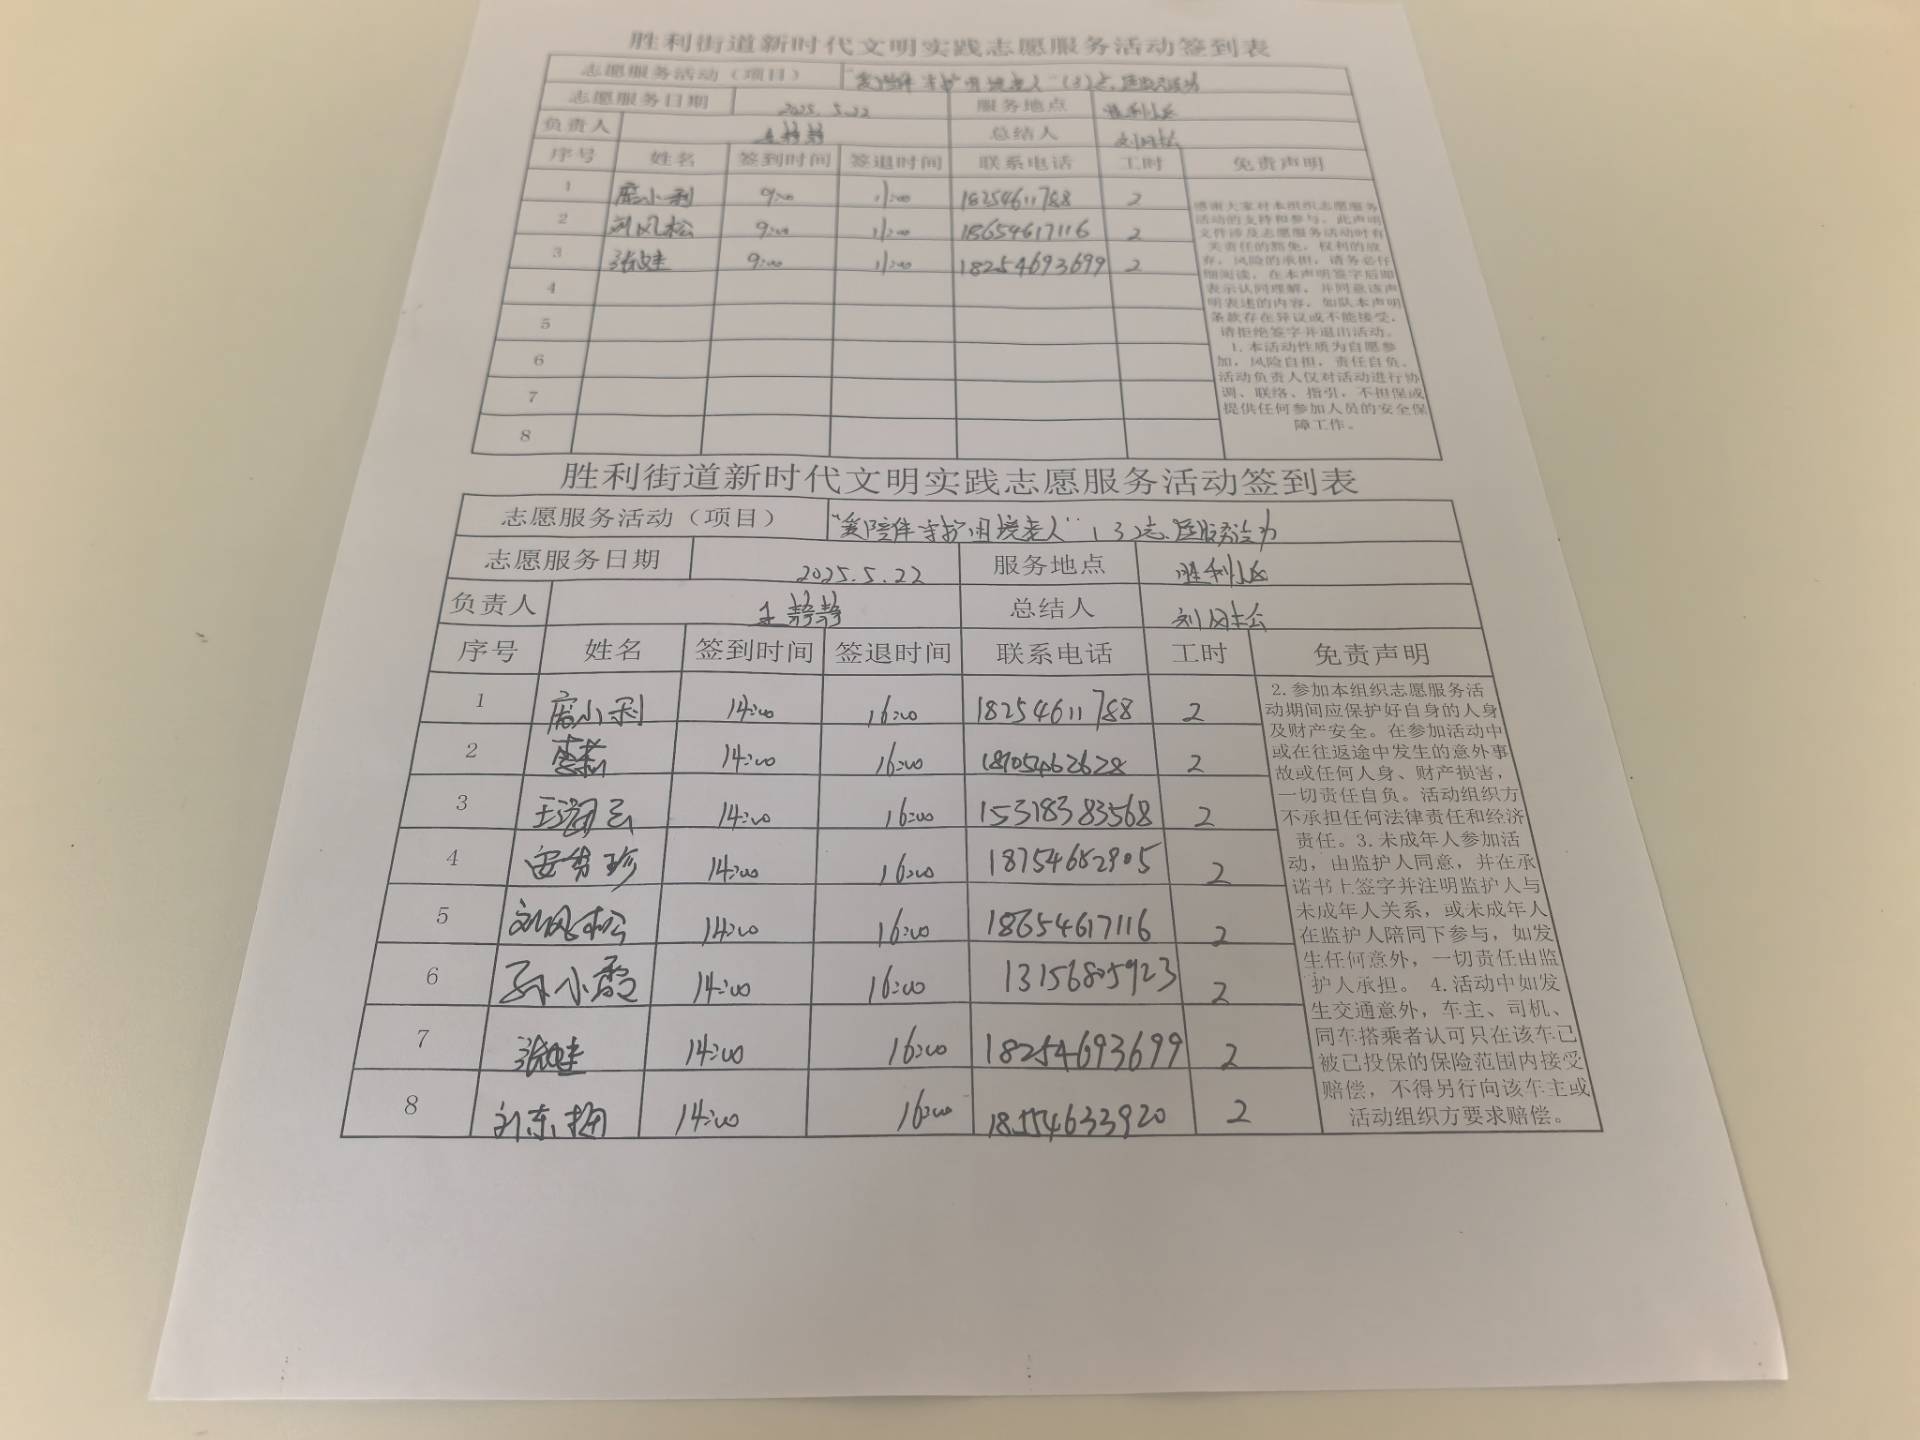 胜利街道新时代文明实践志愿服务活动签到表
志愿服务活动（项目）
志愿服务日期 2025.5.22 服务地点 胜利小区
负责人 王静静 总结人
序号 姓名 签到时间 签退时间 联系电话 工时 免责声明
1 小利 9:00 11:00 18254611788 2
2 刘风松 9:00 11:00 18654617116 2
3 9:00 11:00 18254693699 2
4
5
6
7
8
感谢大家对本组织志愿服务
活动的支持和参与。此声明
文件涉及志愿服务活动时有
关责任的豁免，权利的放
弃，风险的承担，请务必仔
细阅读，在本声明签字后即
表示认同理解，并同意该声
明表述的内容，如队本声明
条款存在异议或不能接受，
请拒绝签字并退出活动。
1.本活动性质为自愿参
加，风险自担，责任自负。
活动负责人仅对活动进行协
调、联络、指引，不担保或
提供任何参加人员的安全保
障工作。
胜利街道新时代文明实践志愿服务活动签到表
志愿服务活动（项目） "爱陪伴 守护困境老人"（3）志愿服务活动
志愿服务日期 2025.5.22 服务地点 胜利小区
负责人 王静静 总结人 刘风松
序号 姓名 签到时间 签退时间 联系电话 工时 免责声明
1 小利 14:00 16:00 18254611788 2
2 14:00 16:00 18705462628 2
3 王 云 14:00 16:00 15318383568 2
4 珍 14:00 16:00 18754682905 2
5 刘风松 14:00 16:00 18654617116 2
6 孙小霞 14:00 16:00 13156805923 2
7 14:00 16:00 18254693699 2
8 刘东梅 14:00 16:00 18554633920 2
2.参加本组织志愿服务活
动期间应保护好自身的人身
及财产安全。在参加活动中
或在往返途中发生的意外事
故或任何人身、财产损害，
一切责任自负。活动组织方
不承担任何法律责任和经济
责任。3.未成年人参加活
动，由监护人同意，并在承
诺书上签字并注明监护人与
未成年人关系，或未成年人
在监护人陪同下参与，如发
生任何意外，一切责任由监
护人承担。 4.活动中如发
生交通意外，车主、司机、
同车搭乘者认可只在该车已
被已投保的保险范围内接受
赔偿，不得另行向该车主或
活动组织方要求赔偿。